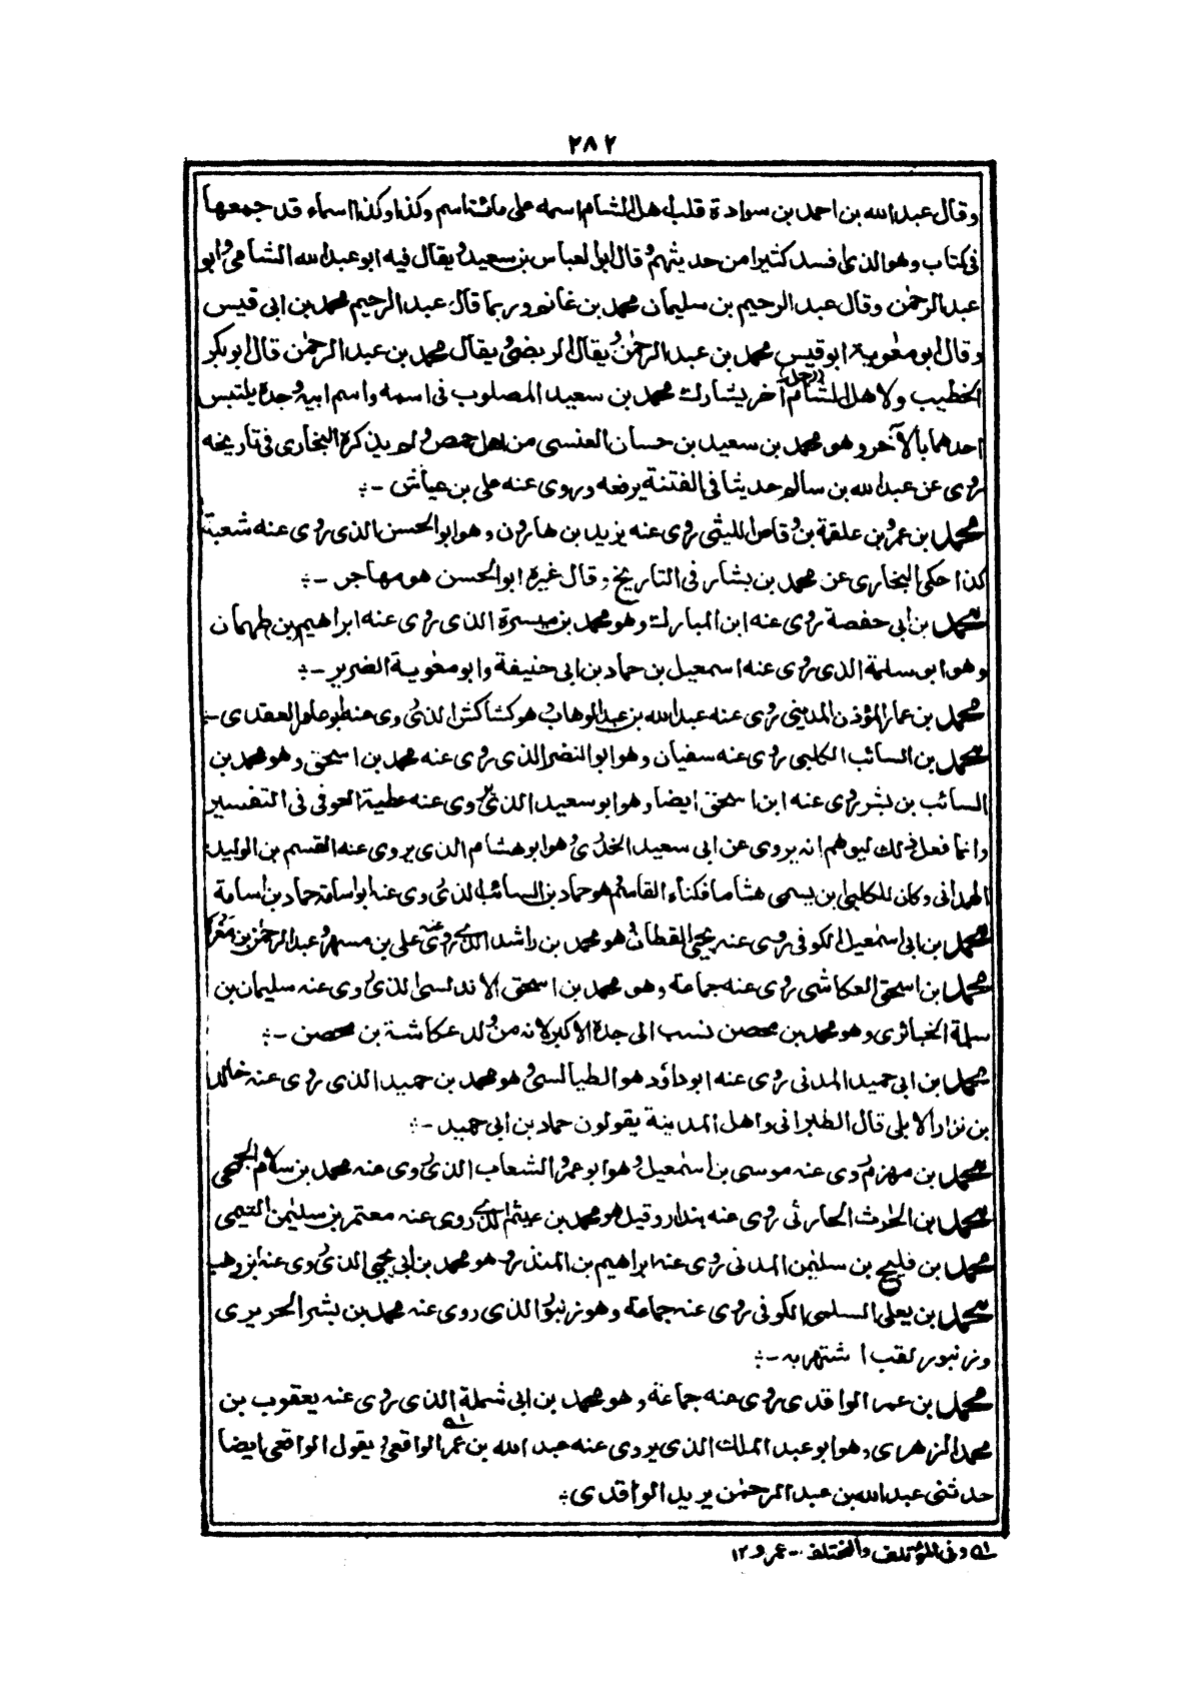 ٢٨٢
وقال عبد الله بن احمد بن سوادة قلب اهل الشام اسمه على مائة اسم وكذا وكذا اسماء قد جمعها
فى كتاب وهو الذى افسد كثيرا من حديثهم وقال ابو العباس بن سعيد ويقال فيه ابو عبد الله الشامى وابو
عبد الرحمٰن وقال عبد الرحيم بن سليمان محمد بن غانم وربما قال عبد الرحيم محمد بن ابى قيس
وقال ابو معٰوية ابو قيس محمد بن عبد الرحمٰن ويقال الربضى ويقال محمد بن عبد الرحمٰن قال ابو بكر
الخطيب ولاهل الشام (رجل) آخر يشارك محمد بن سعيد المصلوب فى اسمه واسم ابيه وجده يلتبس
احدهما بالآخر وهو محمد بن سعيد بن حسان العنسى من اهل حمص ولم يذكره البخارى فى تاريخه
روى عن عبد الله بن سالم حديثا فى الفتنة يرفعه وروى عنه على بن عياش -:
محمد بن عمرو بن علقمة بن وقاص الليثى روى عنه يزيد بن هارون وهو ابو الحسن الذى روى عنه شعبة
كذا حكى البخارى عن محمد بن بشار فى التاريخ وقال غيره ابو الحسن هو مهاجر -:
محمد بن ابى حفصة روى عنه ابن المبارك وهو محمد بن ميسرة الذى روى عنه ابراهيم بن طهمان
وهو ابو سلمة الذى روى عنه اسمعيل بن حماد بن ابى حنيفة وابو معٰوية الضرير -:
محمد بن عمار المؤذن المدينى روى عنه عبد الله بن عبد الوهاب وهو كشاكش الذى روى عنه ابو عامر العقدى -:
محمد بن السائب الكلبى روى عنه سفيان وهو ابو النضر الذى روى عنه محمد بن اسحٰق وهو محمد بن
السائب بن بشر روى عنه ابن اسحٰق ايضا وهو ابو سعيد الذى روى عنه عطية العوفى فى التفسير
وانما فعل ذلك ليوهم انه يروى عن ابى سعيد الخدرى وهو ابو هشام الذى يروى عنه القسم بن الوليد
الهمدانى وكان للكلبى ابن يسمى هشاما فكناه القاسم وهو حماد بن السائب الذى روى عنه ابو اسامة حماد بن اسامة
محمد بن ابى اسمٰعيل الكوفى روى عنه يحيى القطان وهو محمد بن راشد الذى روى عنه على بن مسهر وعبد الرحمٰن بن مغراء
محمد بن اسحٰق العكاشى روى عنه جماعة وهو محمد بن اسحٰق الاندلسى الذى روى عنه سليمان بن
سلمة الخبائرى وهو محمد بن محصن نسب الى جده الاكبر لانه من ولد عكاشة بن محصن -:
محمد بن ابى حميد المدنى روى عنه ابو داؤد هو الطيالسى وهو محمد بن حميد الذى روى عنه خالد
بن نزار الايلى قال الطبرانى واهل المدينة يقولون حماد بن ابى حميد -:
محمد بن مهزم روى عنه موسى بن اسمٰعيل وهو ابو عمرو الشعاب الذى روى عنه محمد بن سلام الجمحى
محمد بن الحٰرث الحارثى روى عنه بندار وقيل هو محمد بن عيثم الذى روى عنه معتمر بن سليمٰن التيمى
محمد بن فليح بن سليمٰن المدنى روى عنه ابراهيم بن المنذر وهو محمد بن ابى يحيى الذى روى عنه ابن وهب
محمد بن يعلى السلمى الكوفى روى عنه جماعة وهو زنبور الذى روى عنه محمد بن بشر الحريرى
وزنبور لقب اشتهر به -:
محمد بن عمر الواقدى روى عنه جماعة وهو محمد بن ابى شملة الذى روى عنه يعقوب بن
محمد الزهرى وهو ابو عبد الملك الذى يروى عنه عبد الله بن عمر(١) الواقعى ويقول الواقعى ايضا
حدثنى عبد الله بن عبد الرحمٰن يريد الواقدى:
(١) وفى المؤتلف والمختلف - عمرو ١٢